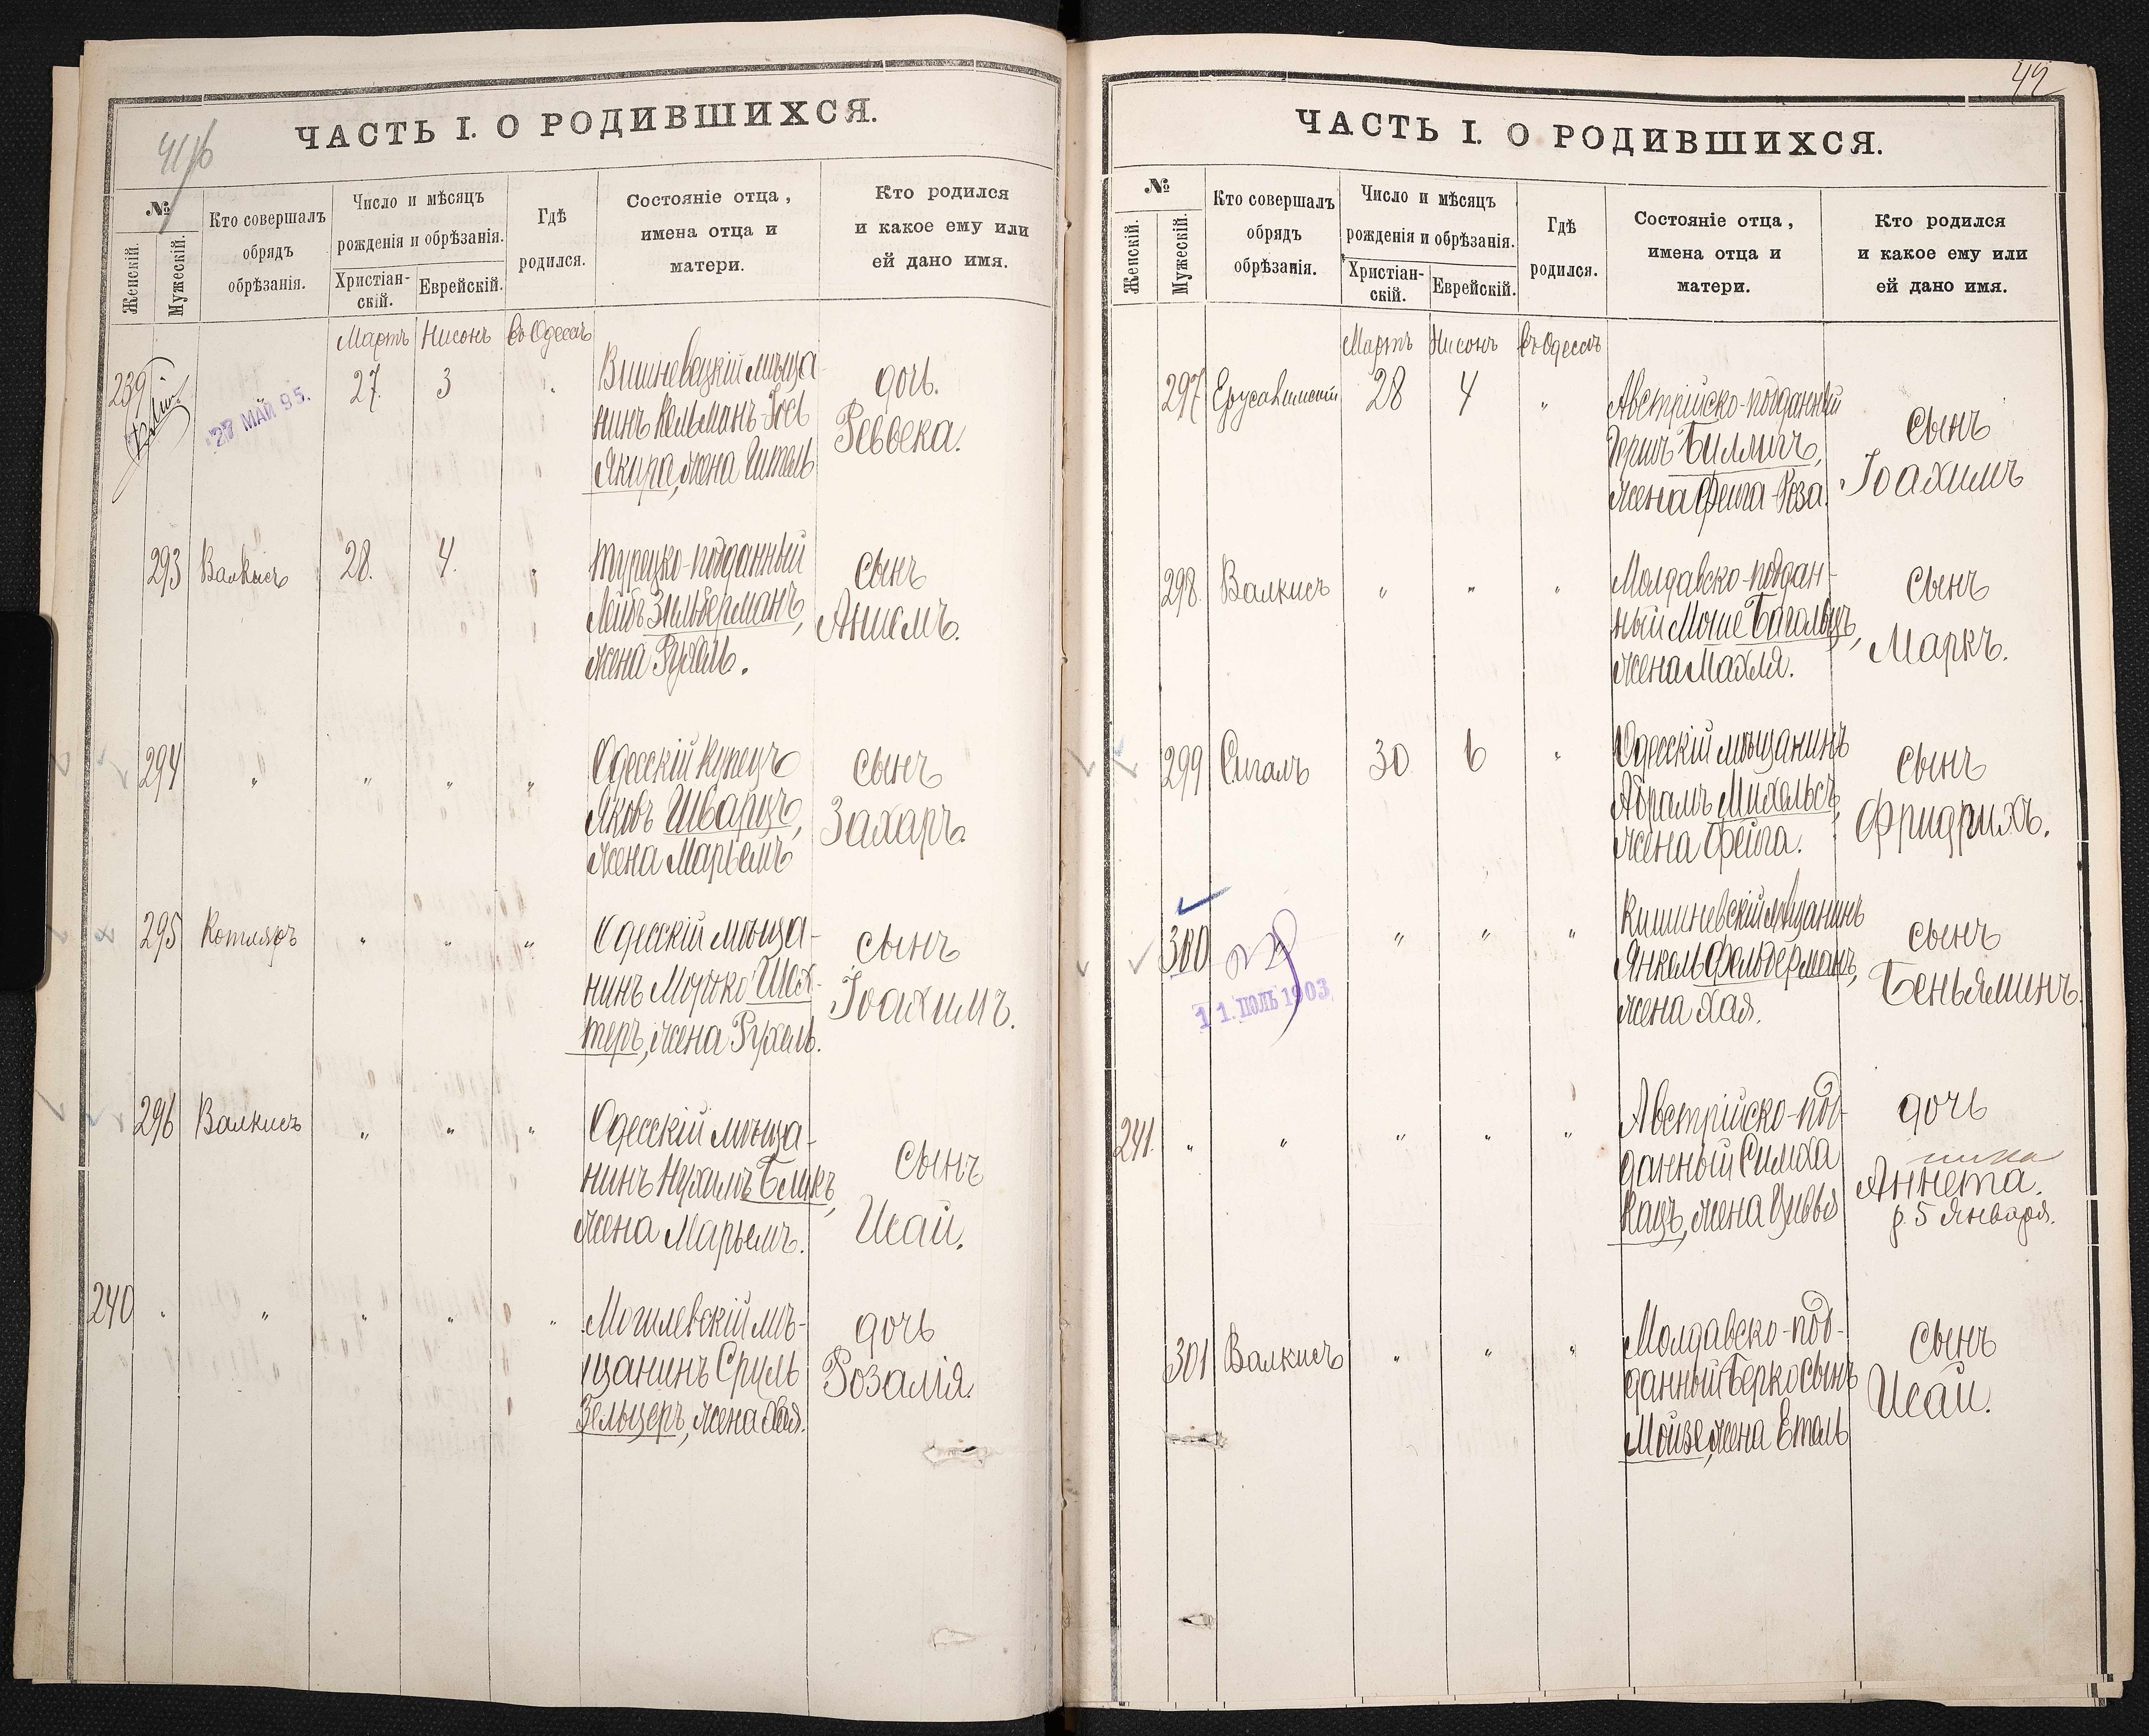 ЧАСТЬ I. О РОДИВШИХСЯ.
№
Женскій.
Мужескій.
Кто совершалъ
обрядъ
обрѣзанія.
Число и мѣсяцъ
рожденія и обрѣзанія.
Христіан-
скій.
Еврейскій.
Гдѣ
родился.
Состояніе отца,
имена отца и
матери.
Кто родился
и какое ему или
ей дано имя.
Мартъ Нисонъ въ Одессѣ
239 27 3 "
27 МАЙ 95.
Вишневацкій мѣща-
нинъ Кельманъ-Іось
Якира, жена Гитель
дочь.
Реввека.
293 Валкисъ 28. 4. "
Турецко-подданный
Лейбъ Зильберманъ,
жена Рухль.
сынъ
Аншелъ.
294 " " " "
Одесскій купецъ
Яковъ Шварцъ,
жена Марьемъ
сынъ
Захаръ.
295 Котляръ " " "
Одесскій мѣща-
нинъ Мошко Шех-
теръ, жена Рухель.
сынъ
Іоахимъ.
296 Валкисъ " " "
Одесскій мѣща-
нинъ Нухимъ Бликъ,
жена Марьемъ.
сынъ
Исай.
240 " " " " "
Могилевскій мѣ-
щанинъ Сруль
Зельцеръ, жена Хая.
дочь
Розалія.
42
ЧАСТЬ I. О РОДИВШИХСЯ.
№
Женскій.
Мужескій.
Кто совершалъ
обрядъ
обрѣзанія.
Число и мѣсяцъ
рожденія и обрѣзанія.
Христіан-
скій.
Еврейскій.
Гдѣ
родился.
Состояніе отца,
имена отца и
матери.
Кто родился
и какое ему или
ей дано имя.
Мартъ Нисонъ въ Одессѣ
297 Ерусалимскій 28 4 "
Австрійско-подданный
Гершъ Биллигъ,
жена Фейга-Роза.
сынъ
Іоахимъ
298 Валкисъ " " "
Молдавско-поддан-
ный Моше
жена Махля.
сынъ
Маркъ.
299 Сигалъ 30 6 "
Одесскій мѣщанинъ
Абрамъ Михельсъ,
жена Фейга.
сынъ
Фридрихъ.
300 " " "
11. ІЮЛЬ 1903
Кишиневскій мѣщанинъ
Янкель Фельдерманъ,
жена Хая.
сынъ
Беньяминъ.
241. " " " " "
Австрійско-под-
данный Симха
Кацъ, жена Цивья
дочь
Аннета.
р. 5 Января.
301 Валкисъ " " "
Молдавско-под-
данный Берко сынъ
Мойзе, жена Етель
сынъ
Исай.